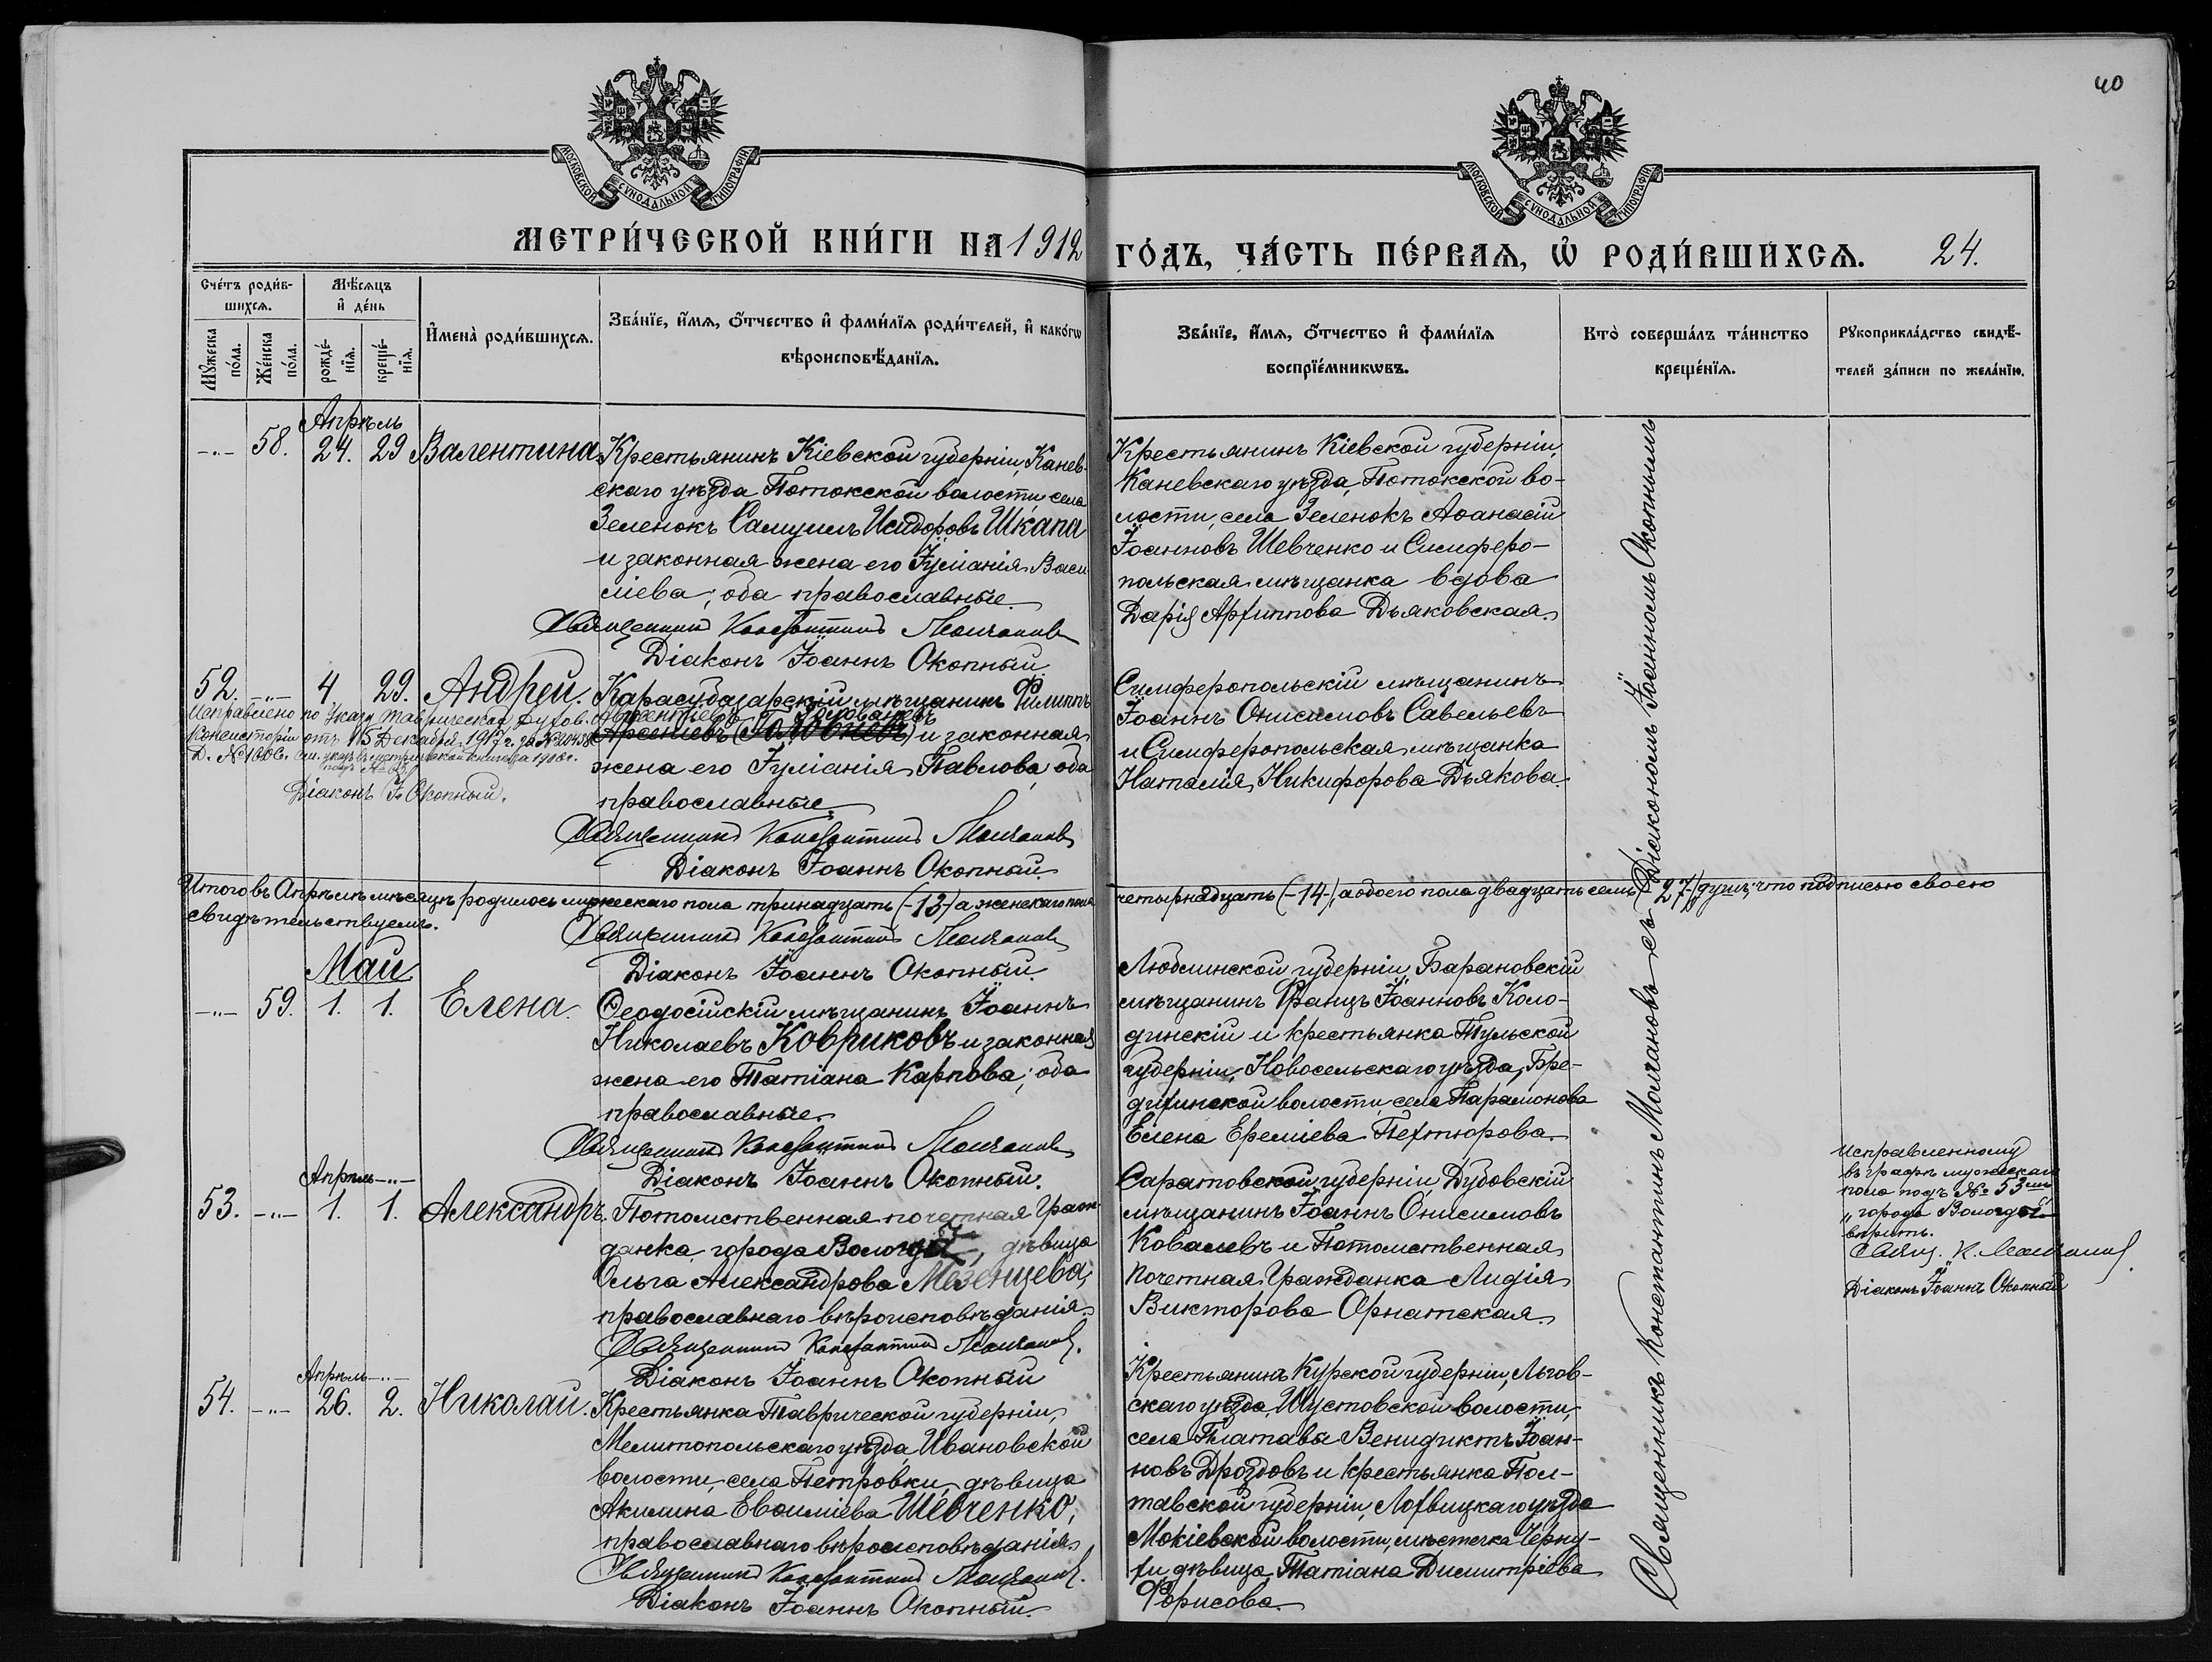 40
МОСКОВСКОЙ СУНОДАЛЬНОЙ ТИПОГРАФІИ
МОСКОВСКОЙ СУНОДАЛЬНОЙ ТИПОГРАФІИ
МЕТРИ́ЧЕСКОЙ КНИ́ГИ НА 1912
ГО́ДЪ, ЧА́СТЬ ПЕ́РВАЯ, Ѡ҆ РОДИ́ВШИХСЯ. 24.
Сче́тъ роди́в-
шихся.
Мꙋжеска
по́ла.
Же́нска
по́ла.
Мѣ́сяцъ
и҆ де́нь
рожде́-
нїя.
креще́-
нїя.
И҆мена̀ роди́вшихся.
Зва́нїе, и҆́мя, ѻ҆́тчество и҆ фами́лїя роди́телей, и҆ како́гѡ
вѣроисповѣ́данїя.
Зва́нїе, и҆́мя, ѻ҆́тчество и҆ фами́лїя
воспрїе́мникѡвъ.
Кто̀ соверша́лъ та́инство
креще́нїя.
Рꙋкоприкла́дство свидѣ́-
телей за́писи по жела́нїю.
Апрѣль
-„- 58. 24. 29 Валентина
Крестьянинъ Кіевской губерніи, Канев-
скаго уѣзда Потокской волости села
Зеленокъ Самуилъ Исидоровъ Шкапа
и законная жена его Іуліанія Васи-
ліева; оба православные.
Священникъ Константинъ Молчановъ
Діаконъ Іоаннъ Окопный
Крестьянинъ Кіевской губерніи,
Каневскаго уѣзда, Потокской во-
лости, села Зеленокъ Аѳанасій
Іоанновъ Шевченко и Симферо-
польская мѣщанка вдова
Дарія Архиппова Дьяковская.
52. -„- 4. 29. Андрей.
Карасубазарскій мѣщанинъ Филиппъ
Авксентьевъ Головачевъ
Арсеніевъ и законная
жена его Іуліанія Павлова, оба
православные.
Священникъ Константинъ Молчановъ
Діаконъ Іоаннъ Окопный.
Исправлено по указу Таврической Духов.
Консисторіи отъ 15 Декабря 1917 г. за № 20438
Д. № 1606. См. указъ въ метрической книгѣ за 1918 г.
Діаконъ І. Окопный.
Симферопольскій мѣщанинъ
Іоаннъ Онисимовъ Савельевъ
и Симферопольская мѣщанка
Наталія Никифорова Дьякова.
Итого въ Апрѣлѣ мѣсяцѣ родилось мужескаго пола тринадцать (-13-) а женскаго пола
четырнадцать (-14-), а обоего пола двадцать семь (-27-) душъ, что подписью своею
свидѣтельствуемъ.
Священникъ Константинъ Молчановъ
Діаконъ Іоаннъ Окопный.
Май
-„- 59. 1. 1. Елена.
Ѳеодосійскій мѣщанинъ Іоаннъ
Николаевъ Ковриковъ и законная
жена его Татіана Карпова; оба
православные.
Священникъ Константинъ Молчановъ
Діаконъ Іоаннъ Окопный.
Люблинской губерніи, Барановскій
мѣщанинъ Францъ Іоанновъ Коло-
динскій и крестьянка Тульской
губерніи, Новосельскаго уѣзда, Бре-
дихинской волости, села Парамонова
Елена Ереміева Пехтюрова.
Апрѣль -„-
53. -„- 1. 1. Александръ.
Потомственная почетная Граж-
данка города Вологды, дѣвица
Ольга Александрова Мезенцева,
православнаго вѣроисповѣданія.
Священникъ Константинъ Молчановъ.
Діаконъ Іоаннъ Окопный
Саратовской губерніи, Дубовскій
мѣщанинъ Іоаннъ Онисимовъ
Ковалевъ и Потомственная
Почетная Гражданка Лидія
Викторова Орнатская.
Исправленному
въ графѣ мужескаго
пола подъ № 53мъ
„города Вологды“
вѣрить.
Свящ. К. Молчановъ.
Діаконъ Іоаннъ Окопный
Апрѣль -„-
54. -„- 26. 2. Николай.
Крестьянка Таврической губерніи,
Мелитопольскаго уѣзда, Ивановской
волости, села Петровки, дѣвица
Акилина Евѳиміева Шевченко,
православнаго вѣроисповѣданія.
Священникъ Константинъ Молчановъ.
Діаконъ Іоаннъ Окопный.
Крестьянинъ Курской губерніи, Льгов-
скаго уѣзда, Шустовской волости,
села Платавы Венидиктъ Іоан-
новъ Дроздовъ и крестьянка Пол-
тавской губерніи, Лохвицкаго уѣзда
Мокіевской волости, мѣстечка Черну-
хи, дѣвица Татіана Димитріева
Форисова.
Священникъ Константинъ Молчановъ съ Діакономъ Іоанномъ Окопнымъ